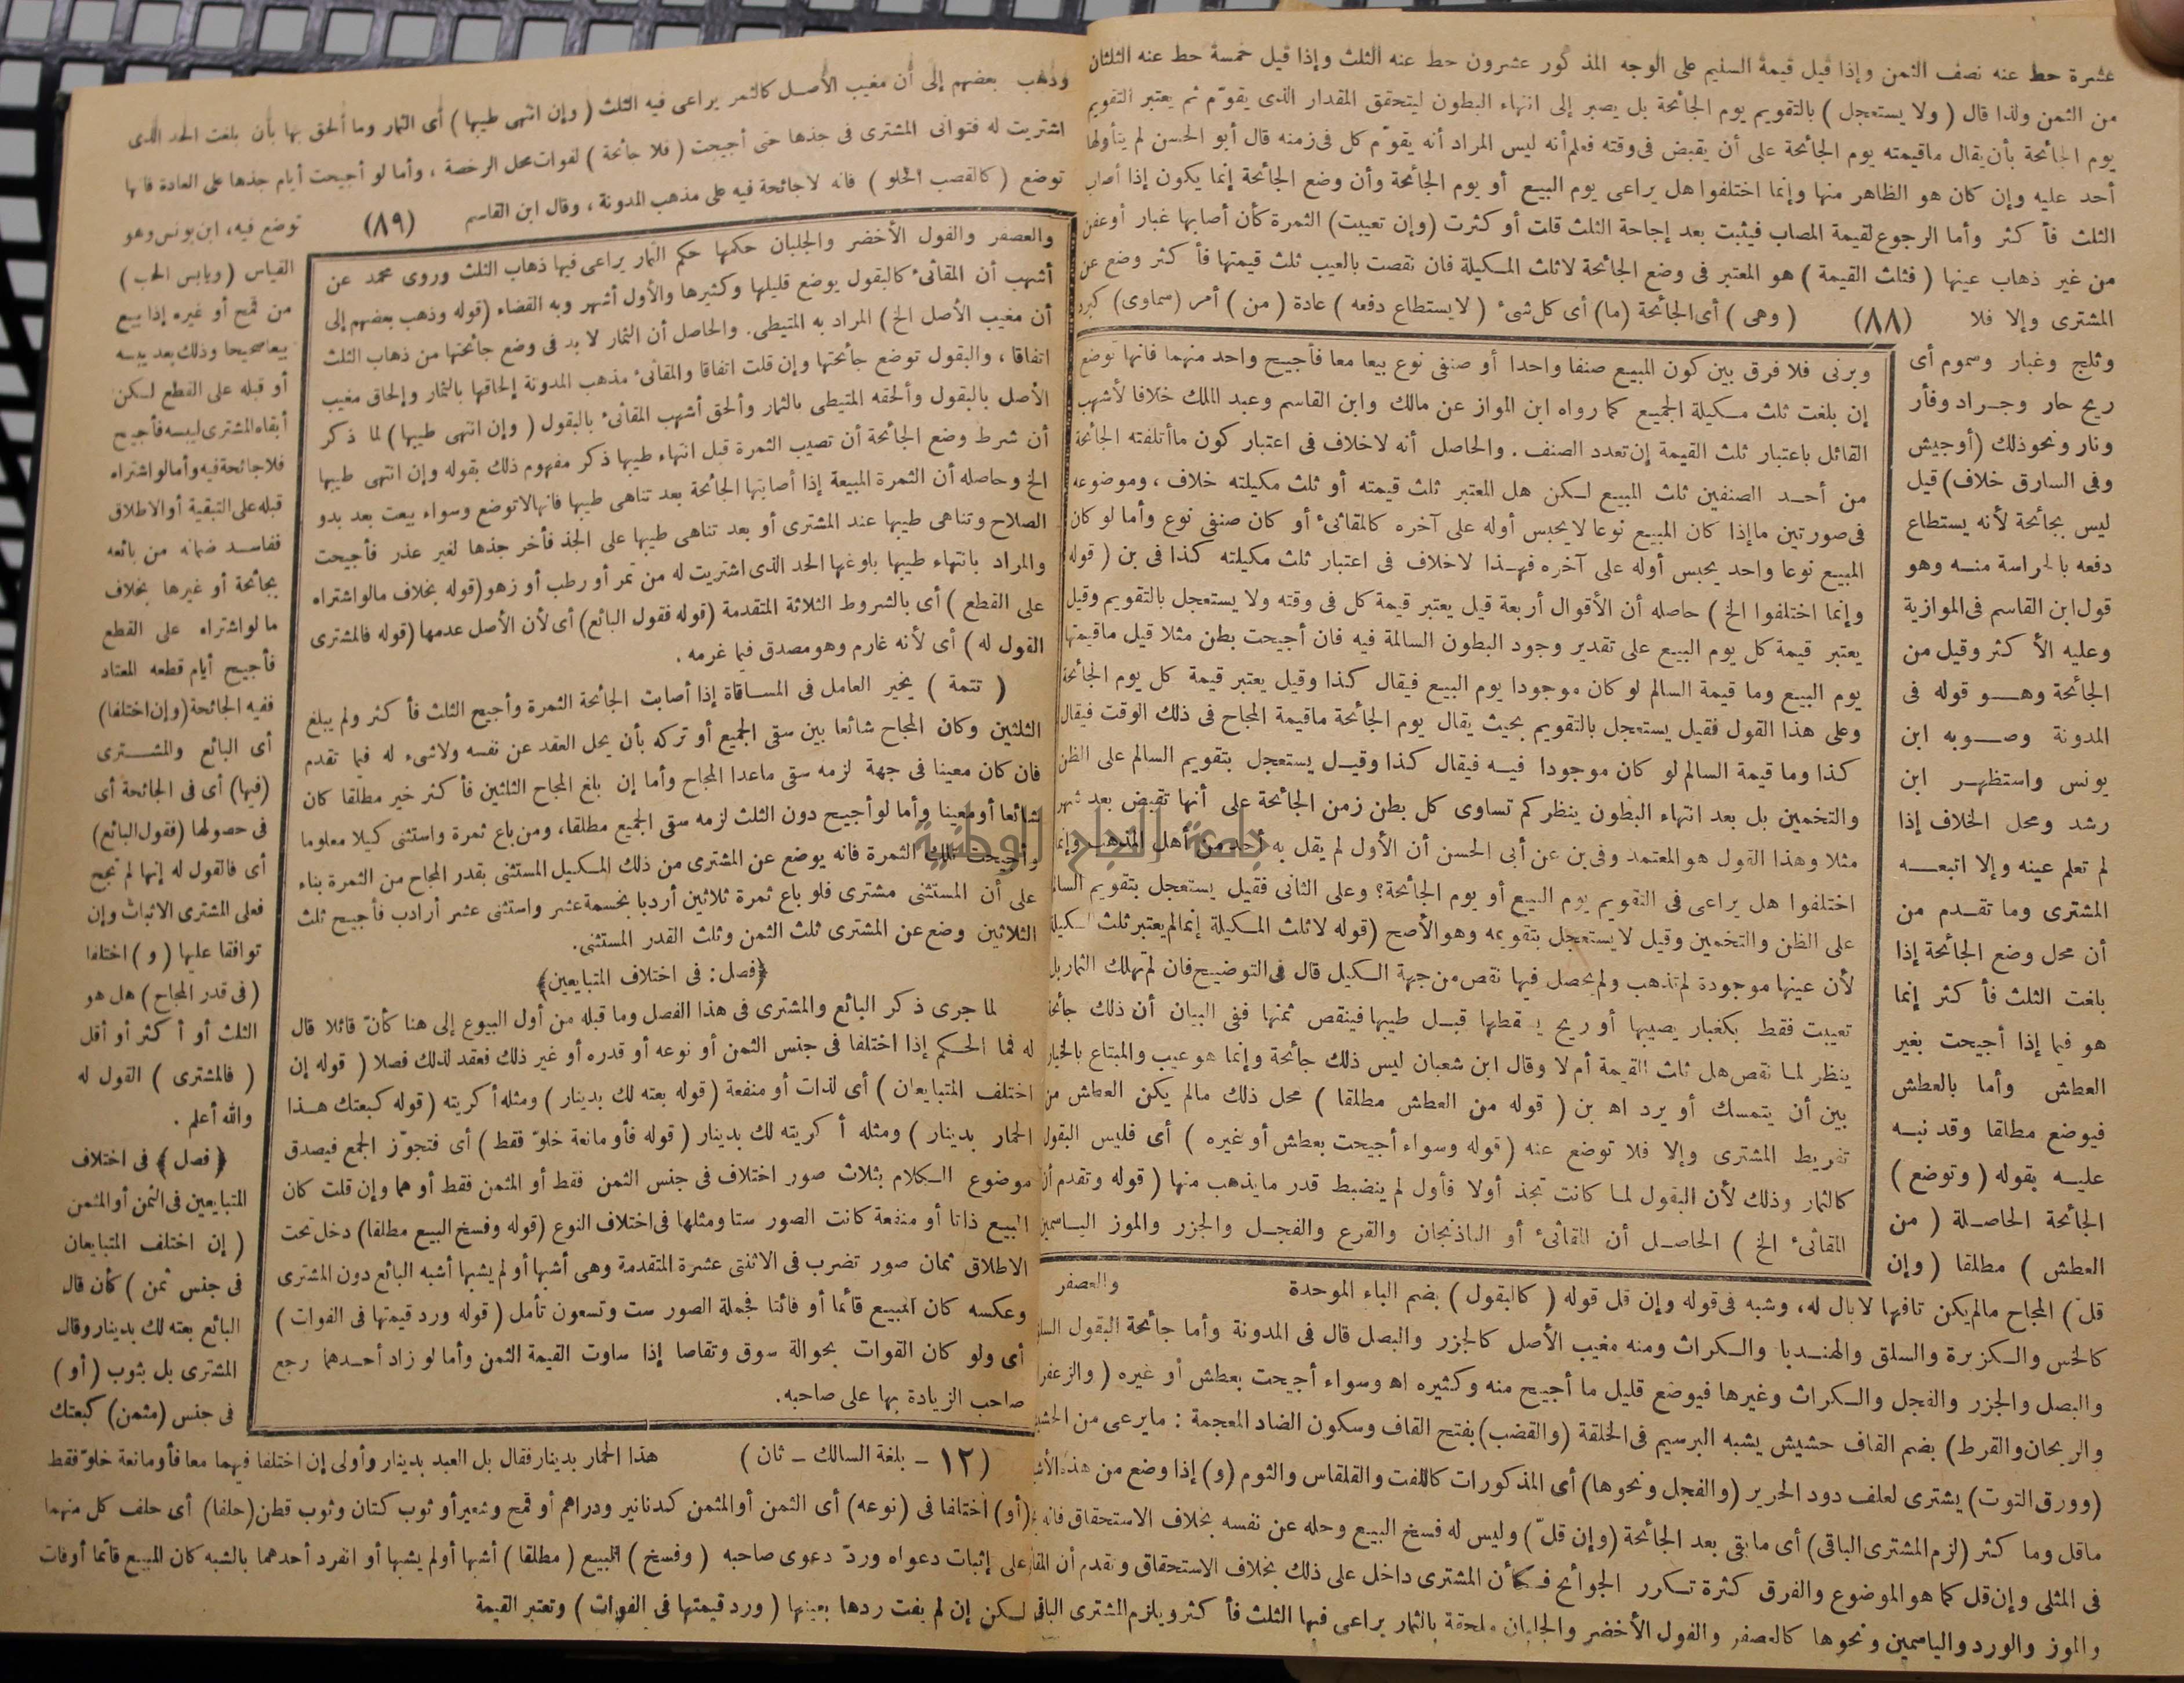 عشرة حط عنه نصف الثمن وإذا قيل قيمة السليم على الوجه المذكور عشرون حط عنه الثلث وإذا قيل خمسة حط عنه الثلثان
من الثمن ولذا قال ( ولا يستعجل ) بالتقويم يوم الجائحة بل يصبر إلى انتهاء البطون ليتحقق المقدار الذى يقوّم ثم يعتبر التقويم
يوم الجائحة بأن يقال ماقيمته يوم الجائحة على أن يقبض فى وقته فعلم أنه ليس المراد أنه يقوّم كل فى زمنه قال أبو الحسن لم يتأولها
أحد عليه وإن كان هو الظاهر منها وإنما اختلفوا هل يراعى يوم البيع أو يوم الجائحة وأن وضع الجائحة إنما يكون إذا أصاب
الثلث فأ كثر وأما الرجوع لقيمة المصاب فيثبت بعد إجاحة الثلث قلت أو كثرت (وإن تعيبت) الثمرة كأن أصابها غبار أوعفن
من غير ذهاب عينها ( فثلث القيمة ) هو المعتبر فى وضع الجائحة لاثلث المكيلة فان نقصت بالعيب ثلث قيمتها فأ كثر وضع عن
المشترى وإلا فلا (٨٨) ( وهى ) أى الجائحة (ما) أى كل شىء ( لا يستطاع دفعه ) عادة ( من ) أمر (سماوى) كبرد
وثلج وغبار وسموم أى
ريح حار وجراد وفأر
ونار ونحو ذلك (أوجيش
وفى السارق خلاف) قيل
ليس بجائحة لأنه يستطاع
دفعه بالحراسة منه وهو
قول ابن القاسم فى الموازية
وعليه الأ كثر وقيل من
الجائحة وهو قوله فى
المدونة وصوبه ابن
يونس واستظهر ابن
رشد ومحل الخلاف إذا
لم تعلم عينه وإلا اتبعه
المشترى وما تقدم من
أن محل وضع الجائحة إذا
بلغت الثلث فأ كثر إنما
هو فيما إذا أجيحت بغير
العطش وأما بالعطش
فيوضع مطلقا وقد نبه
عليه بقوله ( وتوضع )
الجائحة الحاصلة ( من
العطش ) مطلقا ( وإن
قلّ ) المجاح مالم يكن تافها لا بال له، وشبه فى قوله وإن قل قوله ( كالبقول ) بضم الباء الموحدة
كالخس والكزبرة والسلق والهندبا والكراث ومنه مغيب الأصل كالجزر والبصل قال فى المدونة وأما جائحة البقول السلق
والبصل والجزر والفجل والكراث وغيرها فيوضع قليل ما أجيح منه وكثيره اه وسواء أجيحت بعطش أو غيره ( والزعفران
والريحان والقرط) بضم القاف حشيش يشبه البرسيم فى الخلقة (والقضب) بفتح القاف وسكون الضاد المعجمة : مايرعى من الحشيش
(وورق التوت) يشترى لعلف دود الحرير (والفجل ونحوها) أى المذكورات كاللفت والقلقاس والثوم (و) إذا وضع من هذه الأشياء
ماقل وما كثر (لزم المشترى الباقى) أى مابقى بعد الجائحة (وإن قلّ) وليس له فسخ البيع وحله عن نفسه بخلاف الاستحقاق فانه
فى المثلى وإن قل كما هو الموضوع والفرق كثرة تكرر الجوائح فكأن المشترى داخل على ذلك بخلاف الاستحقاق وتقدم أن المقاثئ
والموز والورد والياسمين ونحوها كالعصفر والفول الأخضر والجلبان ملحقة بالثمار يراعى فيها الثلث فأ كثر ويلزم المشترى الباقى
وبرنى فلا فرق بين كون المبيع صنفا واحدا أو صنفى نوع بيعا معا فأجيح واحد منهما فانها توضع
إن بلغت ثلث مكيلة الجميع كما رواه ابن المواز عن مالك وابن القاسم وعبد الملك خلافا لأشهب
القائل باعتبار ثلث القيمة إن تعدد الصنف . والحاصل أنه لاخلاف فى اعتبار كون ماأتلفته الجائحة
من أحد الصنفين ثلث المبيع لكن هل المعتبر ثلث قيمته أو ثلث مكيلته خلاف ، وموضوعه
فى صورتين ماإذا كان المبيع نوعا لا يحبس أوله على آخره كالمقاثئ أو كان صنفى نوع وأما لو كان
المبيع نوعا واحد يحبس أوله على آخره فهذا لاخلاف فى اعتبار ثلث مكيلته كذا فى بن ( قوله
وإنما اختلفوا الخ ) حاصله أن الأقوال أربعة قيل يعتبر قيمة كل فى وقته ولا يستعجل بالتقويم وقيل
يعتبر قيمة كل يوم البيع على تقدير وجود البطون السالمة فيه فان أجيحت بطن مثلا قيل ماقيمتها
يوم البيع وما قيمة السالم لو كان موجودا يوم البيع فيقال كذا وقيل يعتبر قيمة كل يوم الجائحة
وعلى هذا القول فقيل يستعجل بالتقويم بحيث يقال يوم الجائحة ماقيمة المجاح فى ذلك الوقت فيقال
كذا وما قيمة السالم لو كان موجودا فيه فيقال كذا وقيل يستعجل بتقويم السالم على الظن
والتخمين بل بعد انتهاء البطون ينظر كم تساوى كل بطن زمن الجائحة على أنها تقبض بعد شهر
مثلا وهذا القول هو المعتمد وفى بن عن أبى الحسن أن الأول لم يقل به أحد من أهل المذهب وإنما
اختلفوا هل يراعى فى التقويم يوم البيع أو يوم الجائحة؟ وعلى الثانى فقيل يستعجل بتقويم السالم
على الظن والتخمين وقيل لا يستعجل بتقويمه وهو الأصح (قوله لاثلث المكيلة إنمالم يعتبر ثلث المكيلة
لأن عينها موجودة لم تذهب ولم يحصل فيها نقص من جهة الكيل قال فى التوضيح فان لم تهلك الثمار بل
تعيبت فقط بكغبار يصيبها أو ريح يسقطها قبل طيبها فينقص ثمنها ففى البيان أن ذلك جائحة
ينظر لما نقص هل ثلث القيمة أم لا وقال ابن شعبان ليس ذلك جائحة وإنما هو عيب والمبتاع بالخيار
بين أن يتمسك أو يرد اه بن ( قوله من العطش مطلقا ) محل ذلك مالم يكن العطش من
تفريط المشترى وإلا فلا توضع عنه (قوله وسواء أجيحت بعطش أوغيره ) أى فليس البقول
كالثمار وذلك لأن البقول لما كانت تجذ أولا فأول لم ينضبط قدر مايذهب منها ( قوله وتقدم أن
المقاثئ الخ ) الحاصل أن المقاثئ أو الباذنجان والقرع والفجل والجزر والموز الياسمين
والعصفر
وذهب بعضهم إلى أن مغيب الأصل كالثمر يراعى فيه الثلث ( وإن انتهى طيبها ) أى الثمار وما ألحق بها بأن بلغت الحد الذى
اشتريت له فتوانى المشترى فى جذها حتى أجيحت ( فلا جائحة ) لفوات محل الرخصة ، وأما لو أجيحت أيام جذها على العادة فانها
توضع ( كالقصب الحلو ) فانه لاجائحة فيه على مذهب المدونة ، وقال ابن القاسم (٨٩) توضع فيه، ابن يونس وهو
القياس (ويابس الحب )
من قمح أو غيره إذا بيع
بيعا صحيحا وذلك بعد يبسه
أو قبله على القطع لكن
أبقاه المشترى ليبسه فأجيح
فلا جائحة فيه وأما لو اشتراه
قبله على التبقية أو الاطلاق
ففاسد ضمانه من بائعه
بجائحة أو غيرها بخلاف
ما لو اشتراه على القطع
فأجيح أيام قطعه المعتاد
ففيه الجائحة (وإن اختلفا)
أى البائع والمشترى
(فيها) أى فى الجائحة أى
فى حصولها (فقول البائع)
أى فالقول له إنها لم تجح
فعلى المشترى الاثبات وإن
توافقا عليها ( و ) اختلفا
( فى قدر المجاح ) هل هو
الثلث أو أ كثر أو أقل
( فالمشترى ) القول له
والله أعلم .
﴿ فصل ﴾ فى اختلاف
المتبايعين فى الثمن أو المثمن
( إن اختلف المتبايعان
فى جنس ثمن ) كأن قال
البائع بعته لك بدينار وقال
المشترى بل بثوب ( أو )
فى جنس (مثمن) كبعتك
والعصفر والفول الأخضر والجلبان حكمها حكم الثمار يراعى فيها ذهاب الثلث وروى محمد عن
أشهب أن المقاثئ كالبقول يوضع قليلها وكثيرها والأول أشهر وبه القضاء (قوله وذهب بعضهم إلى
أن مغيب الأصل الخ) المراد به المتيطى. والحاصل أن الثمار لا بد فى وضع جائحتها من ذهاب الثلث
اتفاقا ، والبقول توضع جائحتها وإن قلت اتفاقا والمقاثئ مذهب المدونة إلحاقها بالثمار وإلحاق مغيب
الأصل بالبقول وألحقه المتيطى بالثمار وألحق أشهب المقاثئ بالبقول ( وإن انتهى طيبها ) لما ذكر
أن شرط وضع الجائحة أن تصيب الثمرة قبل انتهاء طيبها ذكر مفهوم ذلك بقوله وإن انتهى طيبها
الخ وحاصله أن الثمرة المبيعة إذا أصابتها الجائحة بعد تناهى طيبها فانها لاتوضع وسواء بيعت بعد بدو
الصلاح وتناهى طيبها عند المشترى أو بعد تناهى طيبها على الجذ فأخر جذها لغير عذر فأجيحت
والمراد بانتهاء طيبها بلوغها الحد الذى اشتريت له من تمر أو رطب أو زهو (قوله بخلاف مالو اشتراه
على القطع ) أى بالشروط الثلاثة المتقدمة (قوله فقول البائع) أى لأن الأصل عدمها (قوله فالمشترى
القول له ) أى لأنه غارم وهو مصدق فيما غرمه .
( تتمة ) يخير العامل فى المساقاة إذا أصابت الجائحة الثمرة وأجيح الثلث فأ كثر ولم يبلغ
الثلثين وكان المجاح شائعا بين سقى الجميع أو تركه بأن يحل العقد عن نفسه ولاشىء له فيما تقدم
فان كان معينا فى جهة لزمه سقى ماعدا المجاح وأما إن بلغ المجاح الثلثين فأ كثر خير مطلقا كان
شائعا أو معينا وأما لو أجيح دون الثلث لزمه سقى الجميع مطلقا، ومن باع ثمرة واستثنى كيلا معلوما
وأجيحت تلك الثمرة فانه يوضع عن المشترى من ذلك المكيل المستثنى بقدر المجاح من الثمرة بناء
على أن المستثنى مشترى فلو باع ثمرة ثلاثين أردبا بخمسة عشر واستثنى عشر أرادب فأجيح ثلث
الثلاثين وضع عن المشترى ثلث الثمن وثلث القدر المستثنى.
﴿فصل: فى اختلاف المتبايعين﴾
لما جرى ذكر البائع والمشترى فى هذا الفصل وما قبله من أول البيوع إلى هنا كأنّ قائلا قال
له فما الحكم إذا اختلفا فى جنس الثمن أو نوعه أو قدره أو غير ذلك فعقد لذلك فصلا ( قوله إن
اختلف المتبايعان ) أى لذات أو منفعة (قوله بعته لك بدينار ) ومثله أ كريته (قوله كبعتك هذا
الحمار بدينار ) ومثله أ كريته لك بدينار ( قوله فأو مانعة خلوّ فقط ) أى فتجوّز الجمع فيصدق
موضوع الكلام بثلاث صور اختلاف فى جنس الثمن فقط أو المثمن فقط أو هما وإن قلت كان
البيع ذاتا أو منفعة كانت الصور ستا ومثلها فى اختلاف النوع (قوله وفسخ البيع مطلقا) دخل تحت
الاطلاق ثمان صور تضرب فى الاثنتى عشرة المتقدمة وهى أشبها أو لم يشبها أشبه البائع دون المشترى
وعكسه كان المبيع قائما أو فائتا فجملة الصور ست وتسعون تأمل ( قوله ورد قيمتها فى الفوات )
أى ولو كان الفوات بحوالة سوق وتقاصا إذا ساوت القيمة الثمن وأما لو زاد أحدهما رجع
صاحب الزيادة بها على صاحبه.
(١٢ - بلغة السالك - ثان ) هذا الحمار بدينار فقال بل العبد بدينار وأولى إن اختلفا فيهما معا فأو مانعة خلوّ فقط
(أو) اختلفا فى (نوعه) أى الثمن أو المثمن كدنانير ودراهم أو قمح وشعير أو ثوب كتان وثوب قطن (حلفا) أى حلف كل منهما
على إثبات دعواه وردّ دعوى صاحبه ( وفسخ ) البيع ( مطلقا ) أشبها أو لم يشبها أو انفرد أحدهما بالشبه كان المبيع قائما أو فات
لكن إن لم يفت ردها بعينها ( ورد قيمتها فى الفوات ) وتعتبر القيمة
جامعة النجاح الوطنية